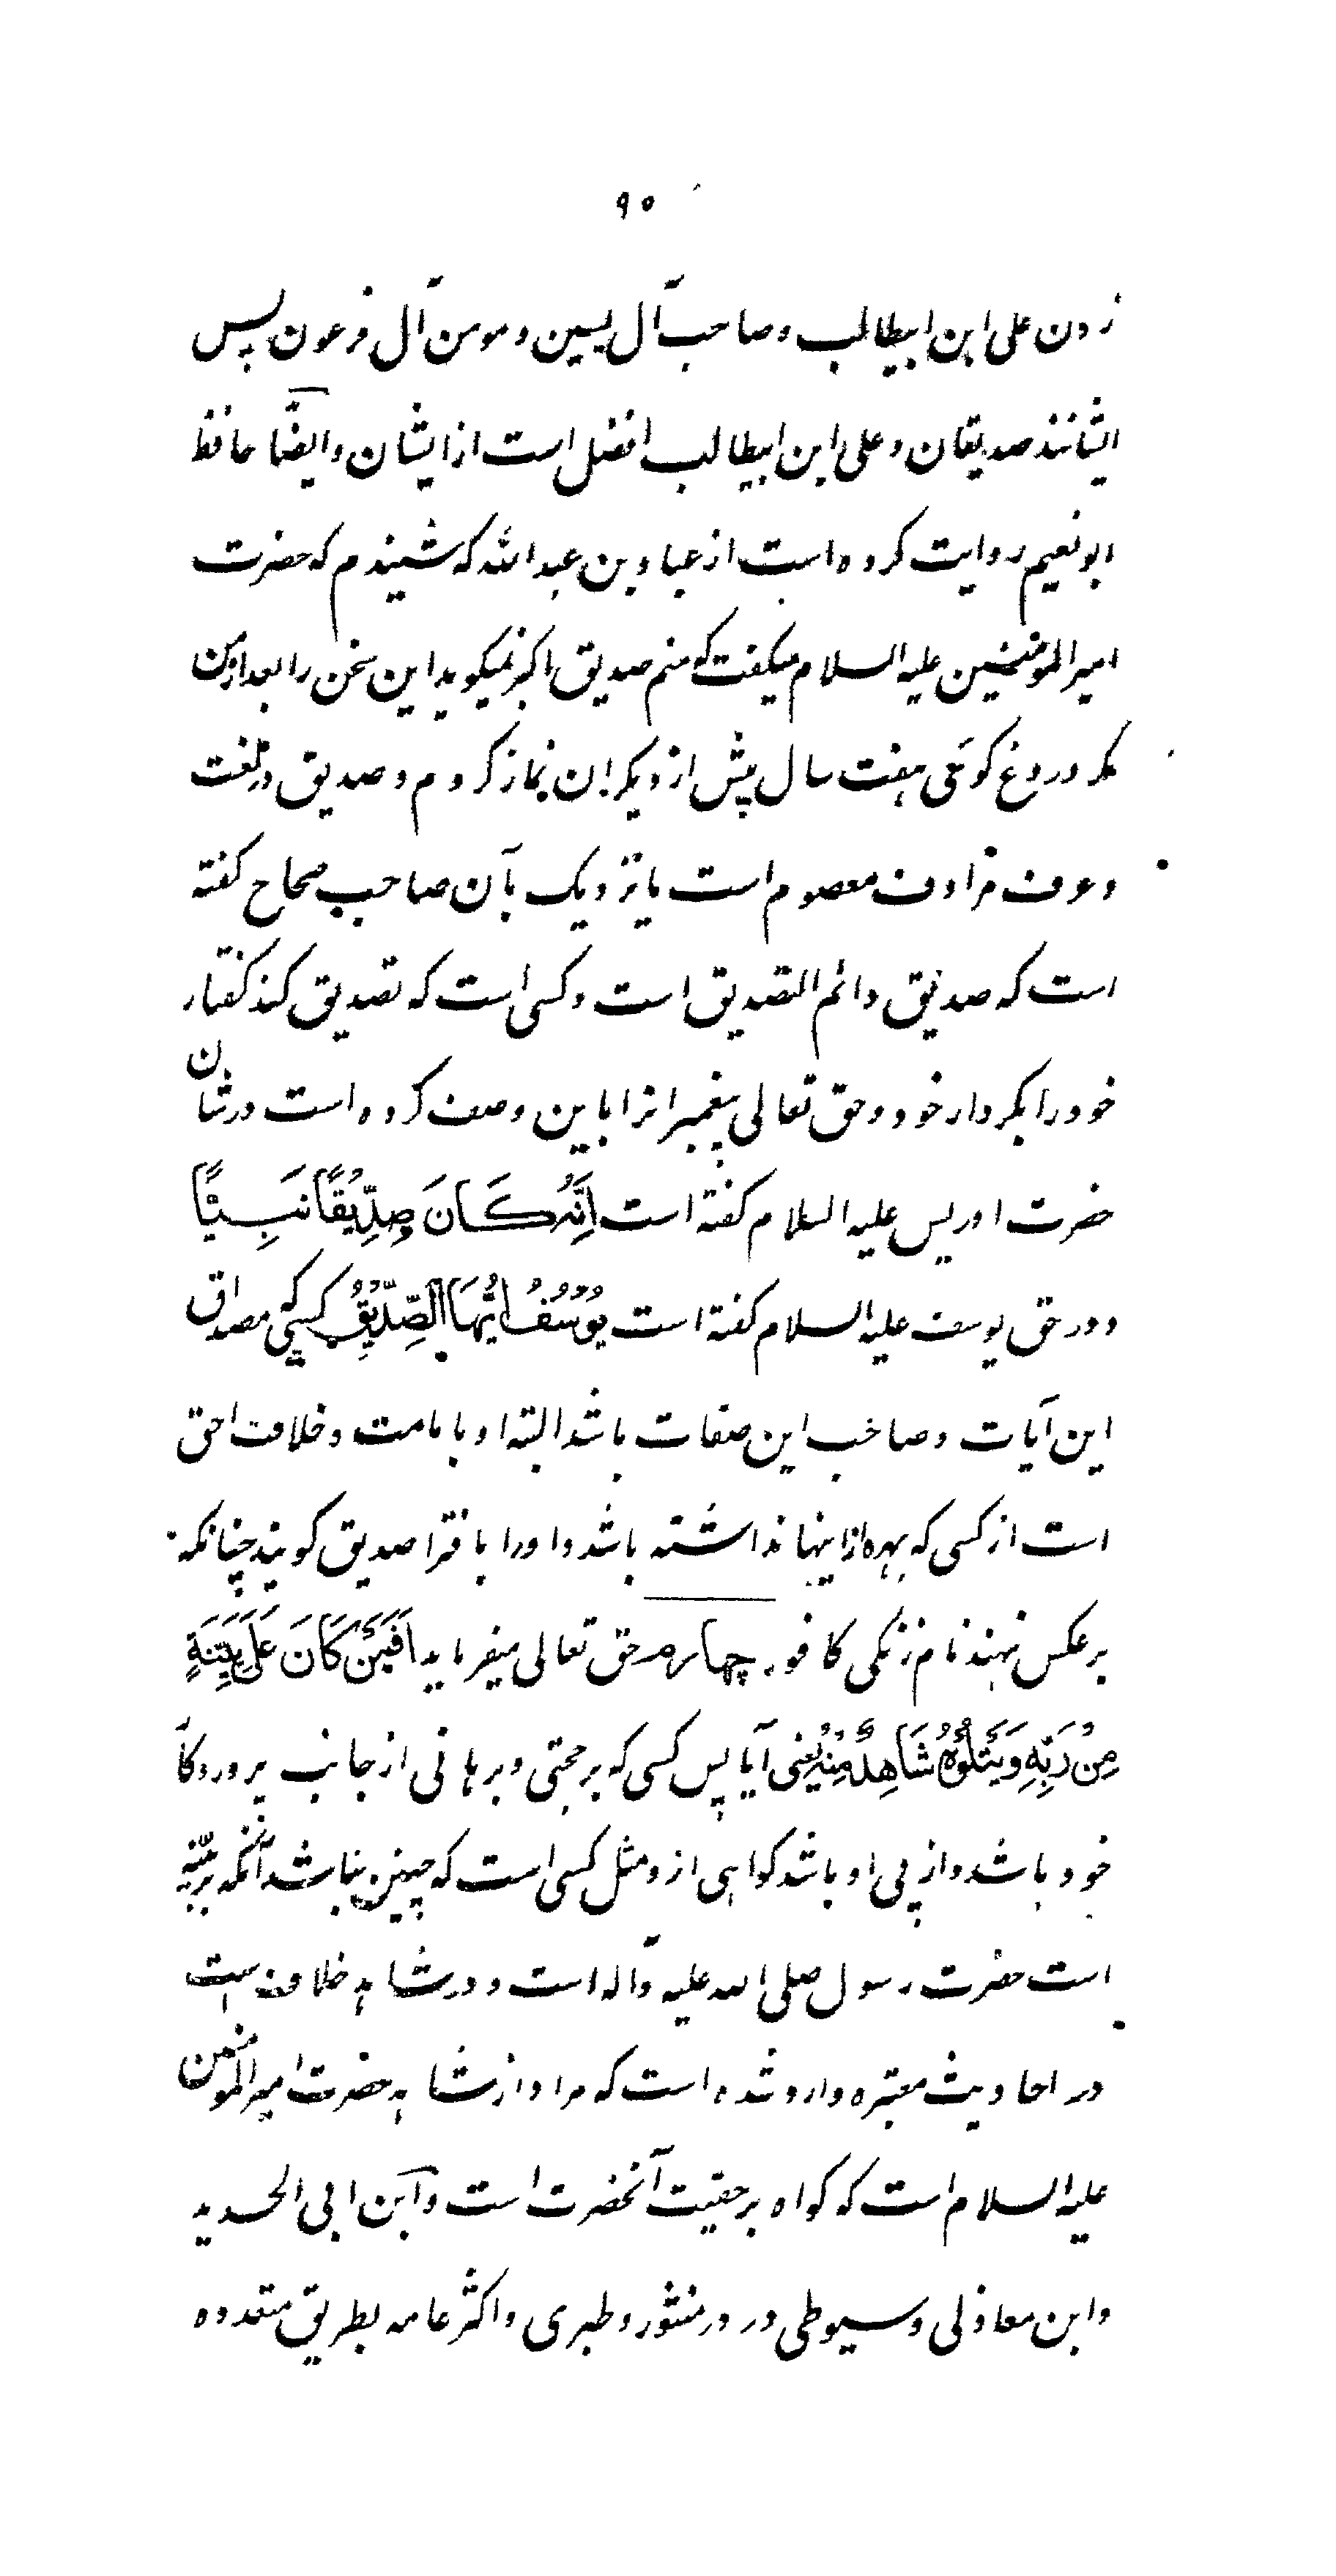 ٩٥
زدن علی ابن ابیطالب و صاحب آل یسین و مومن آل فرعون پس
ایشانند صدیقان و علی ابن ابیطالب افضل است از ایشان و ایضًا حافظ
ابونعیم روایت کرده است از عباد بن عبدالله که شنیدم که حضرت
امیرالمؤمنین علیه السلام میکفت که منم صدیق اکبر نمیکوید این سخن را بعد از من
مکر دروغ کوئی هفت سال پیش از دیکران نماز کردم و صدیق در لغت
و عرف مرادف معصوم است یا نزدیک بآن صاحب صحاح کفته
است که صدیق دائم التصدیق است و کسی است که تصدیق کند کفتار
خود را بکردار خود و حق تعالی پیغمبرانرا باین وصف کرده است در شان
حضرت ادریس علیه السلام کفته است اِنَّهُ كَانَ صِدِّيْقًا نَبِيًّا
و در حق یوسف علیه السلام کفته است يُوْسُفُ اَيُّهَا الصِّدِّيْقُ کسی که مصداق
این آیات و صاحب این صفات باشد البته او بامامت و خلافت احق
است از کسی که بهره از اینها نداشته باشد و اورا بافترا صدیق کویند چنانکه
بر عکس نهند نام زنکی کافور چهارم حق تعالی میفرماید اَفَمَنْ كَانَ عَلٰى بَيِّنَةٍ
مِنْ رَبِّهِ وَيَتْلُوْهُ شَاهِدٌ مِنْهُ یعنی آیا پس کسی که بر حجتی و برهانی از جانب پروردکا
خود باشد و از پی او باشد کواهی از و مثل کسی است که چنین نباشد آنکه بر بیّنه
است حضرت رسول صلی الله علیه و آله است و در شاهد خلافست
در احادیث معتبره وارد شده است که مراد از شاهد حضرت امیرالمؤمنین
علیه السلام است که کواه بر حقیت آنحضرت است و ابن ابی الحدید
و ابن مغازلی و سیوطی در در منثور و طبری و اکثر عامه بطریق متعدده